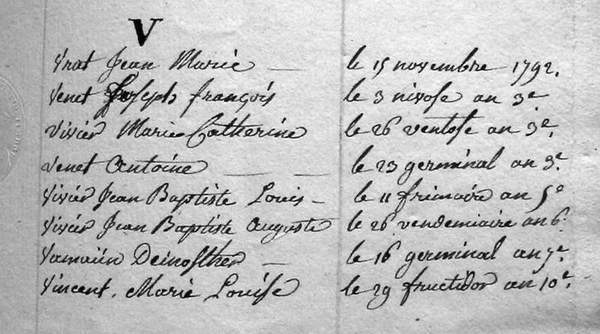 V
Vrat Jean Marie — le 15 novembre 1792.
Venet Joseph françois le 3 nivose an 3e.
Vivier Marie Catherine le 26 ventose an 3e.
Venet Antoine — le 23 germinal an 3e.
Vivier Jean Baptiste Louis — le 11 frimaire an 5e
Vivier Jean Baptiste Auguste le 26 vendemiaire an 6.
le 16 germinal an 7e.
Vincent. Marie Louise le 29 fructidor an 10e.